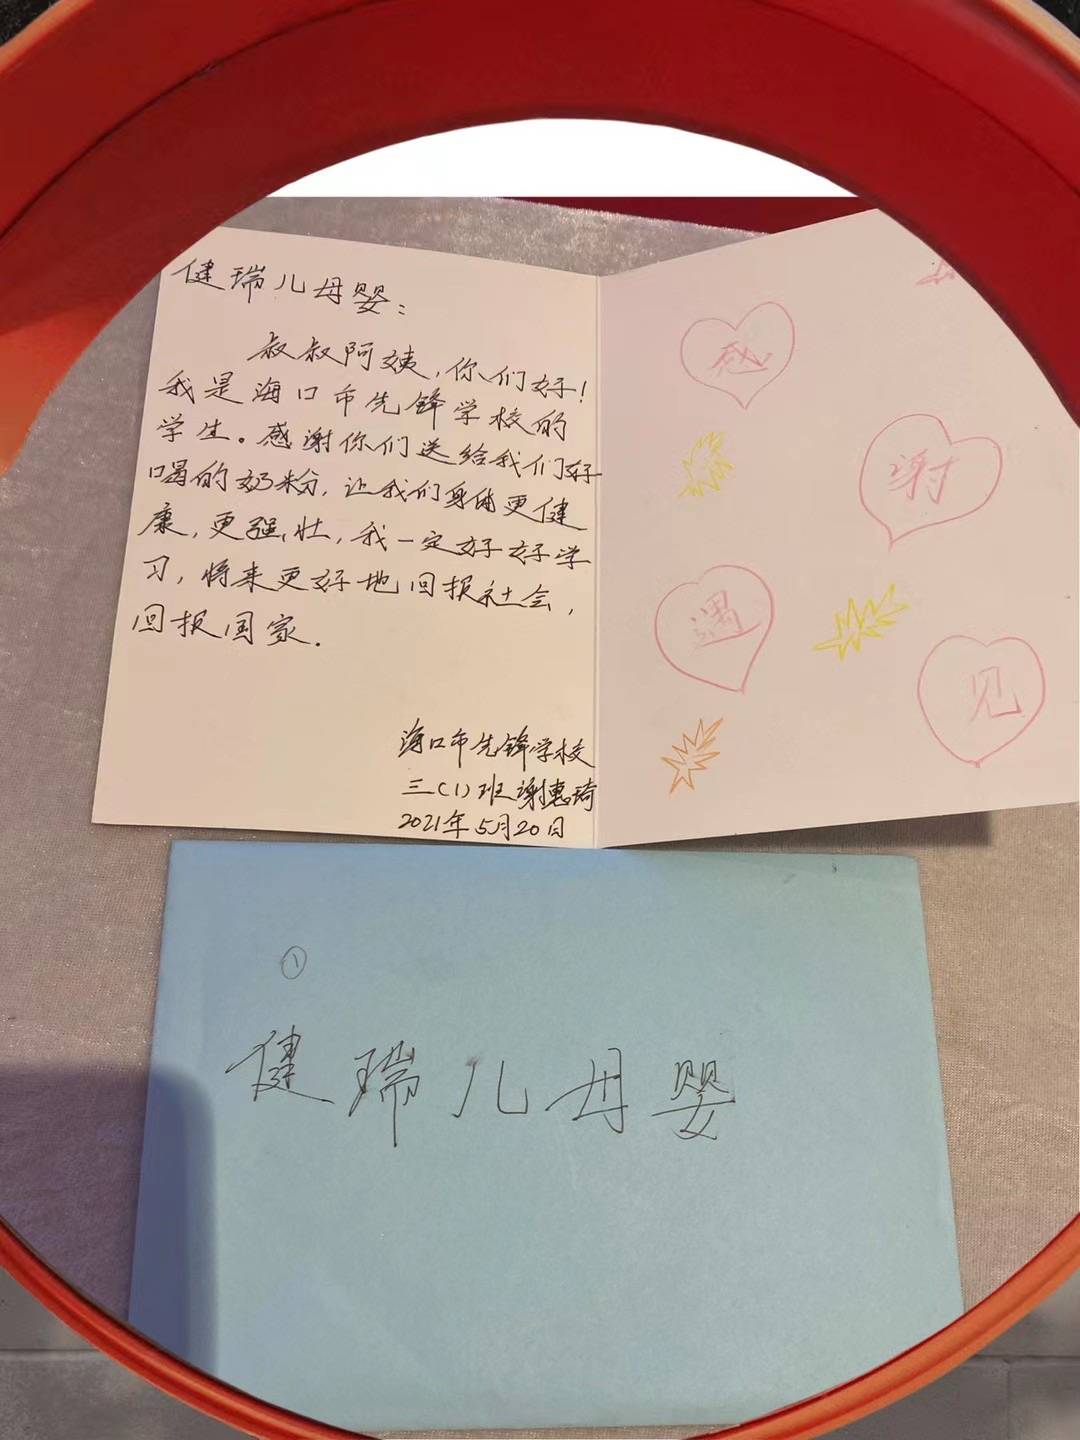 健瑞儿母婴：
叔叔阿姨，你们好！
我是海口市先锋学校的
学生。感谢你们送给我们好
喝的奶粉，让我们身体更健
康，更强壮，我一定好好学
习，将来更好地回报社会，
回报国家.
海口市先锋学校
三(1)班谢惠琦
2021年5月20日
感
谢
遇
见
①
健瑞儿母婴